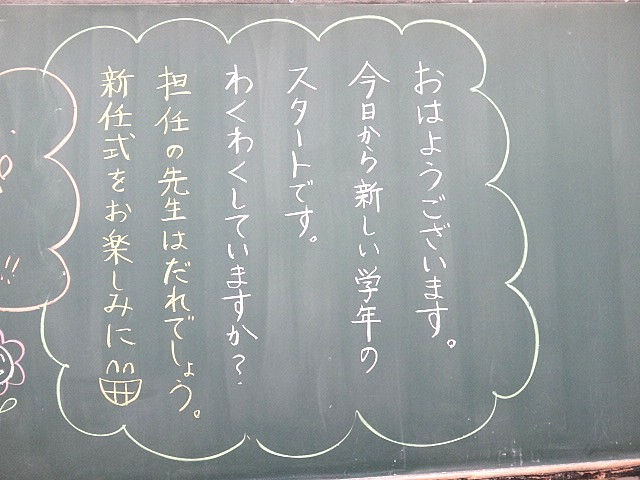 おはようございます。
今日から新しい学年の
スタートです。
わくわくしていますか？
担任の先生はだれでしょう。
新任式をお楽しみに
!!